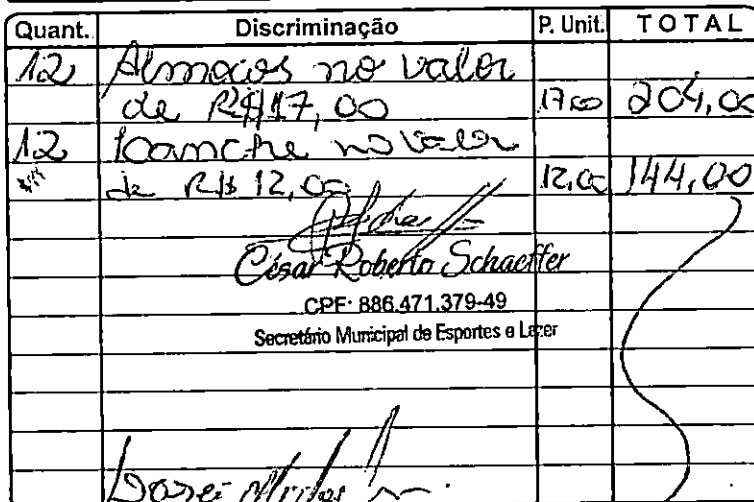 Quant. Discriminação P. Unit. TOTAL
12 Almoços no valor
de R$17,00 17,00 204,00
12 no valor
de R$ 12,00 12,00 144,00
César Roberto Schaeffer
CPF: 886.471.379-49
Secretário Municipal de Esportes e Lazer